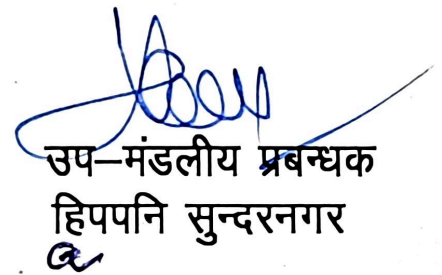 उप–मंडलीय प्रबन्धक
हिपपनि सुन्दरनगर